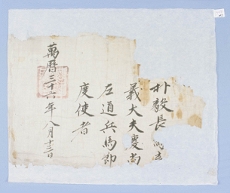 朴毅長爲嘉
義大夫慶尙
左道兵馬節
度使者
萬曆三十六年八月日